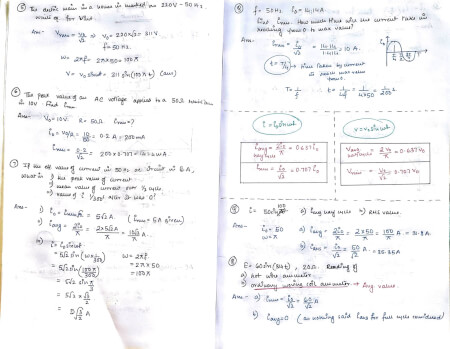 ⑤ The electric main in a house is marked as 230V - 50Hz.
Ans- Vrms = V₀/√2 ⇒ V₀ = 230×√2 = 311V
f = 50Hz.
ω = 2πf = 2π×50 = 100π
V = V₀ sinωt = 311 sin(100πt) (ans)
⑥ The peak value of an AC voltage applied to a 50Ω
is 10V. Find irms
Ans- V₀ = 10V. R = 50Ω irms = ?
i₀ = V₀/R = 10/50 = 0.2A = 200mA
irms = 0.2/√2 = 200×0.707 =
⑦ If the eff value of current in 50 Hz ac circuit is 5A,
what is i) the peak value of current
ii) mean value of current over ½ cycle
iii) value of i 1/300 after it was 0?
Ans- i) i₀ = irms√2 = 5√2 A (irms = 5A given)
ii) iavg = 2i₀/π = 2×5√2/π = 10√2/π A.
iii) i = i₀ sinωt
= 5√2 sin(ω×1/300) ω = 2πf
= 5√2 sin(100π/300) = 2π×50
= 5√2 sin π/3 = 100π
= 5√2 × √3/2
f = 50Hz. i₀ = 14.14A.
Find irms. How much time does the current take in
reaching from 0 to max value?
Ans- irms = i₀/√2 = 14.14/1.414 = 10A.
t = T/4 → time taken by current
to reach max value
from 0.
T = 1/f t = 1/4f = 1/4×50 = 1/200 s
i = i₀ sinωt V = V₀ sinωt
iavg half cycle = 2i₀/π = 0.637i₀ Vavg = 2V₀/π = 0.637V₀
irms = i₀/√2 = 0.707i₀ Vrms = V₀/√2 = 0.707V₀
⑨ i = 50 sin 100πt a) iavg half cycle b) RMS value.
Ans- i₀ = 50 a) iavg = 2i₀/π = 2×50/π = 100/π A = 31.8A.
b) irms = i₀/√2 = 50/√2 A = 35.35A
⑧ E = 60 sin(314t), 20Ω. Reading of
a) hot wire ammeter
b) ordinary moving coil ammeter → Avg value.
Ans- a) irms = i₀/√2 =
b) iavg = 0 (as moving coil for full cycle considered)